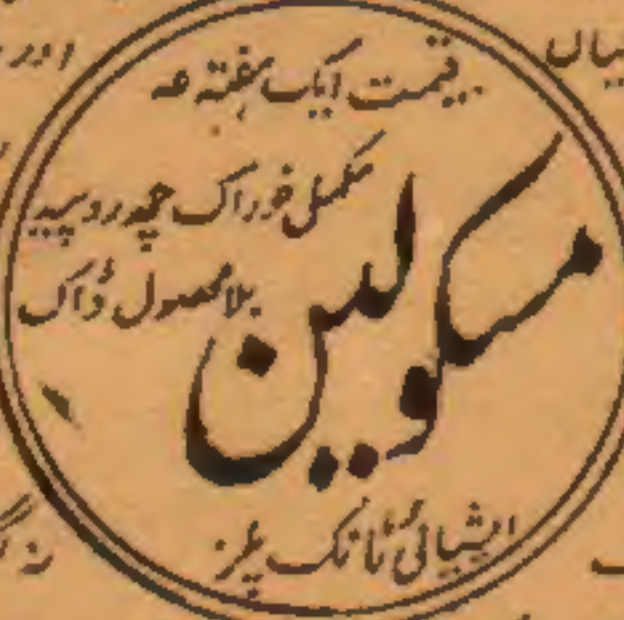 اور
یاں
قیمت ایک ہفتہ عہ
مکمل خوراک چھ روپیہ
بلا محصول ڈاک
مسکولین
ایشیائی ٹانک پلز